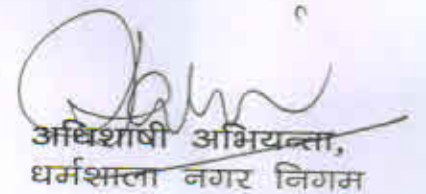 अधिशाषी अभियन्ता,
धर्मशाला नगर निगम